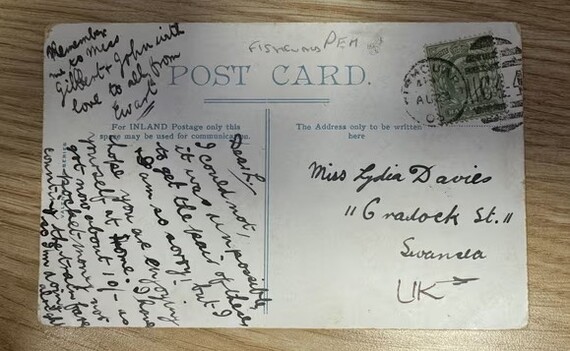 FISHGUARD PEM
POST CARD.
For INLAND Postage only this
space may be used for communication.
The Address only to be written
here
Remember
me to Miss
Gilbert & John with
love to all from
Ewart
Dear L,
I could not,
it was impossible
to get the pair of these
I am so sorry! but I
hope you are enjoying
yourself at Home. I have
got now about 10/- as
pocket money not
counting the train fare
so I'm doing
alright
Miss Lydia Davies
"Cradock St."
Swansea
UK